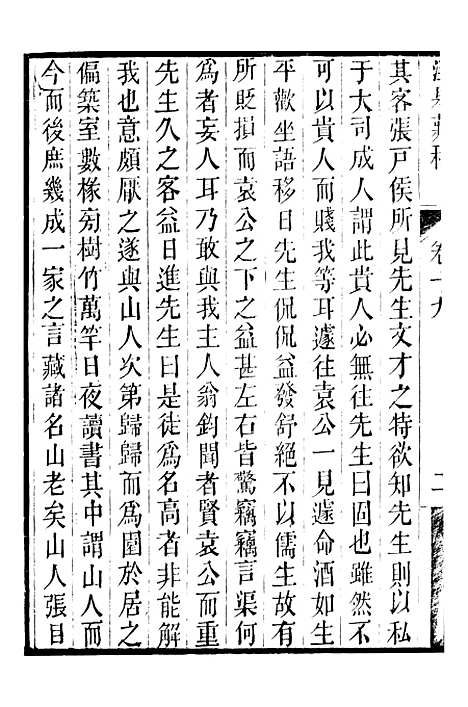 卷十九
二
其客張戸侯所見先生文才之特欲知先生則以私
于大司成人謂此貴人必無往先生曰固也雖然不
可以貴人而賤我等耳遽往袁公一見遽命酒如生
平歡坐語移日先生侃侃益發舒絕不以儒生故有
所貶損而袁公之下之益甚左右皆驚竊竊言渠何
爲者妄人耳乃敢與我主人翁鈞聞者賢袁公而重
先生久之客益日進先生曰是徒爲名高者非能解
我也意頗厭之遂與山人次第歸歸而爲園於居之
偏築室數椽旁樹竹萬竿日夜讀書其中謂山人而
今而後庶幾成一家之言藏諸名山老矣山人張目